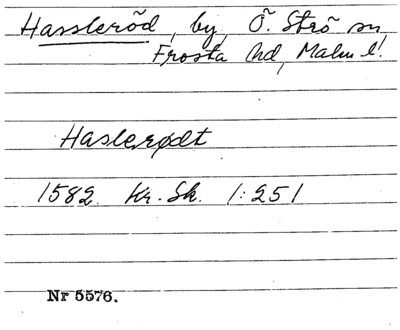 Hassleröd, by, Ö. Strö sn,
Frosta hd, Malm l.
Haslerødt
1582 Kr. Sk. 1:251
Nr 5576.